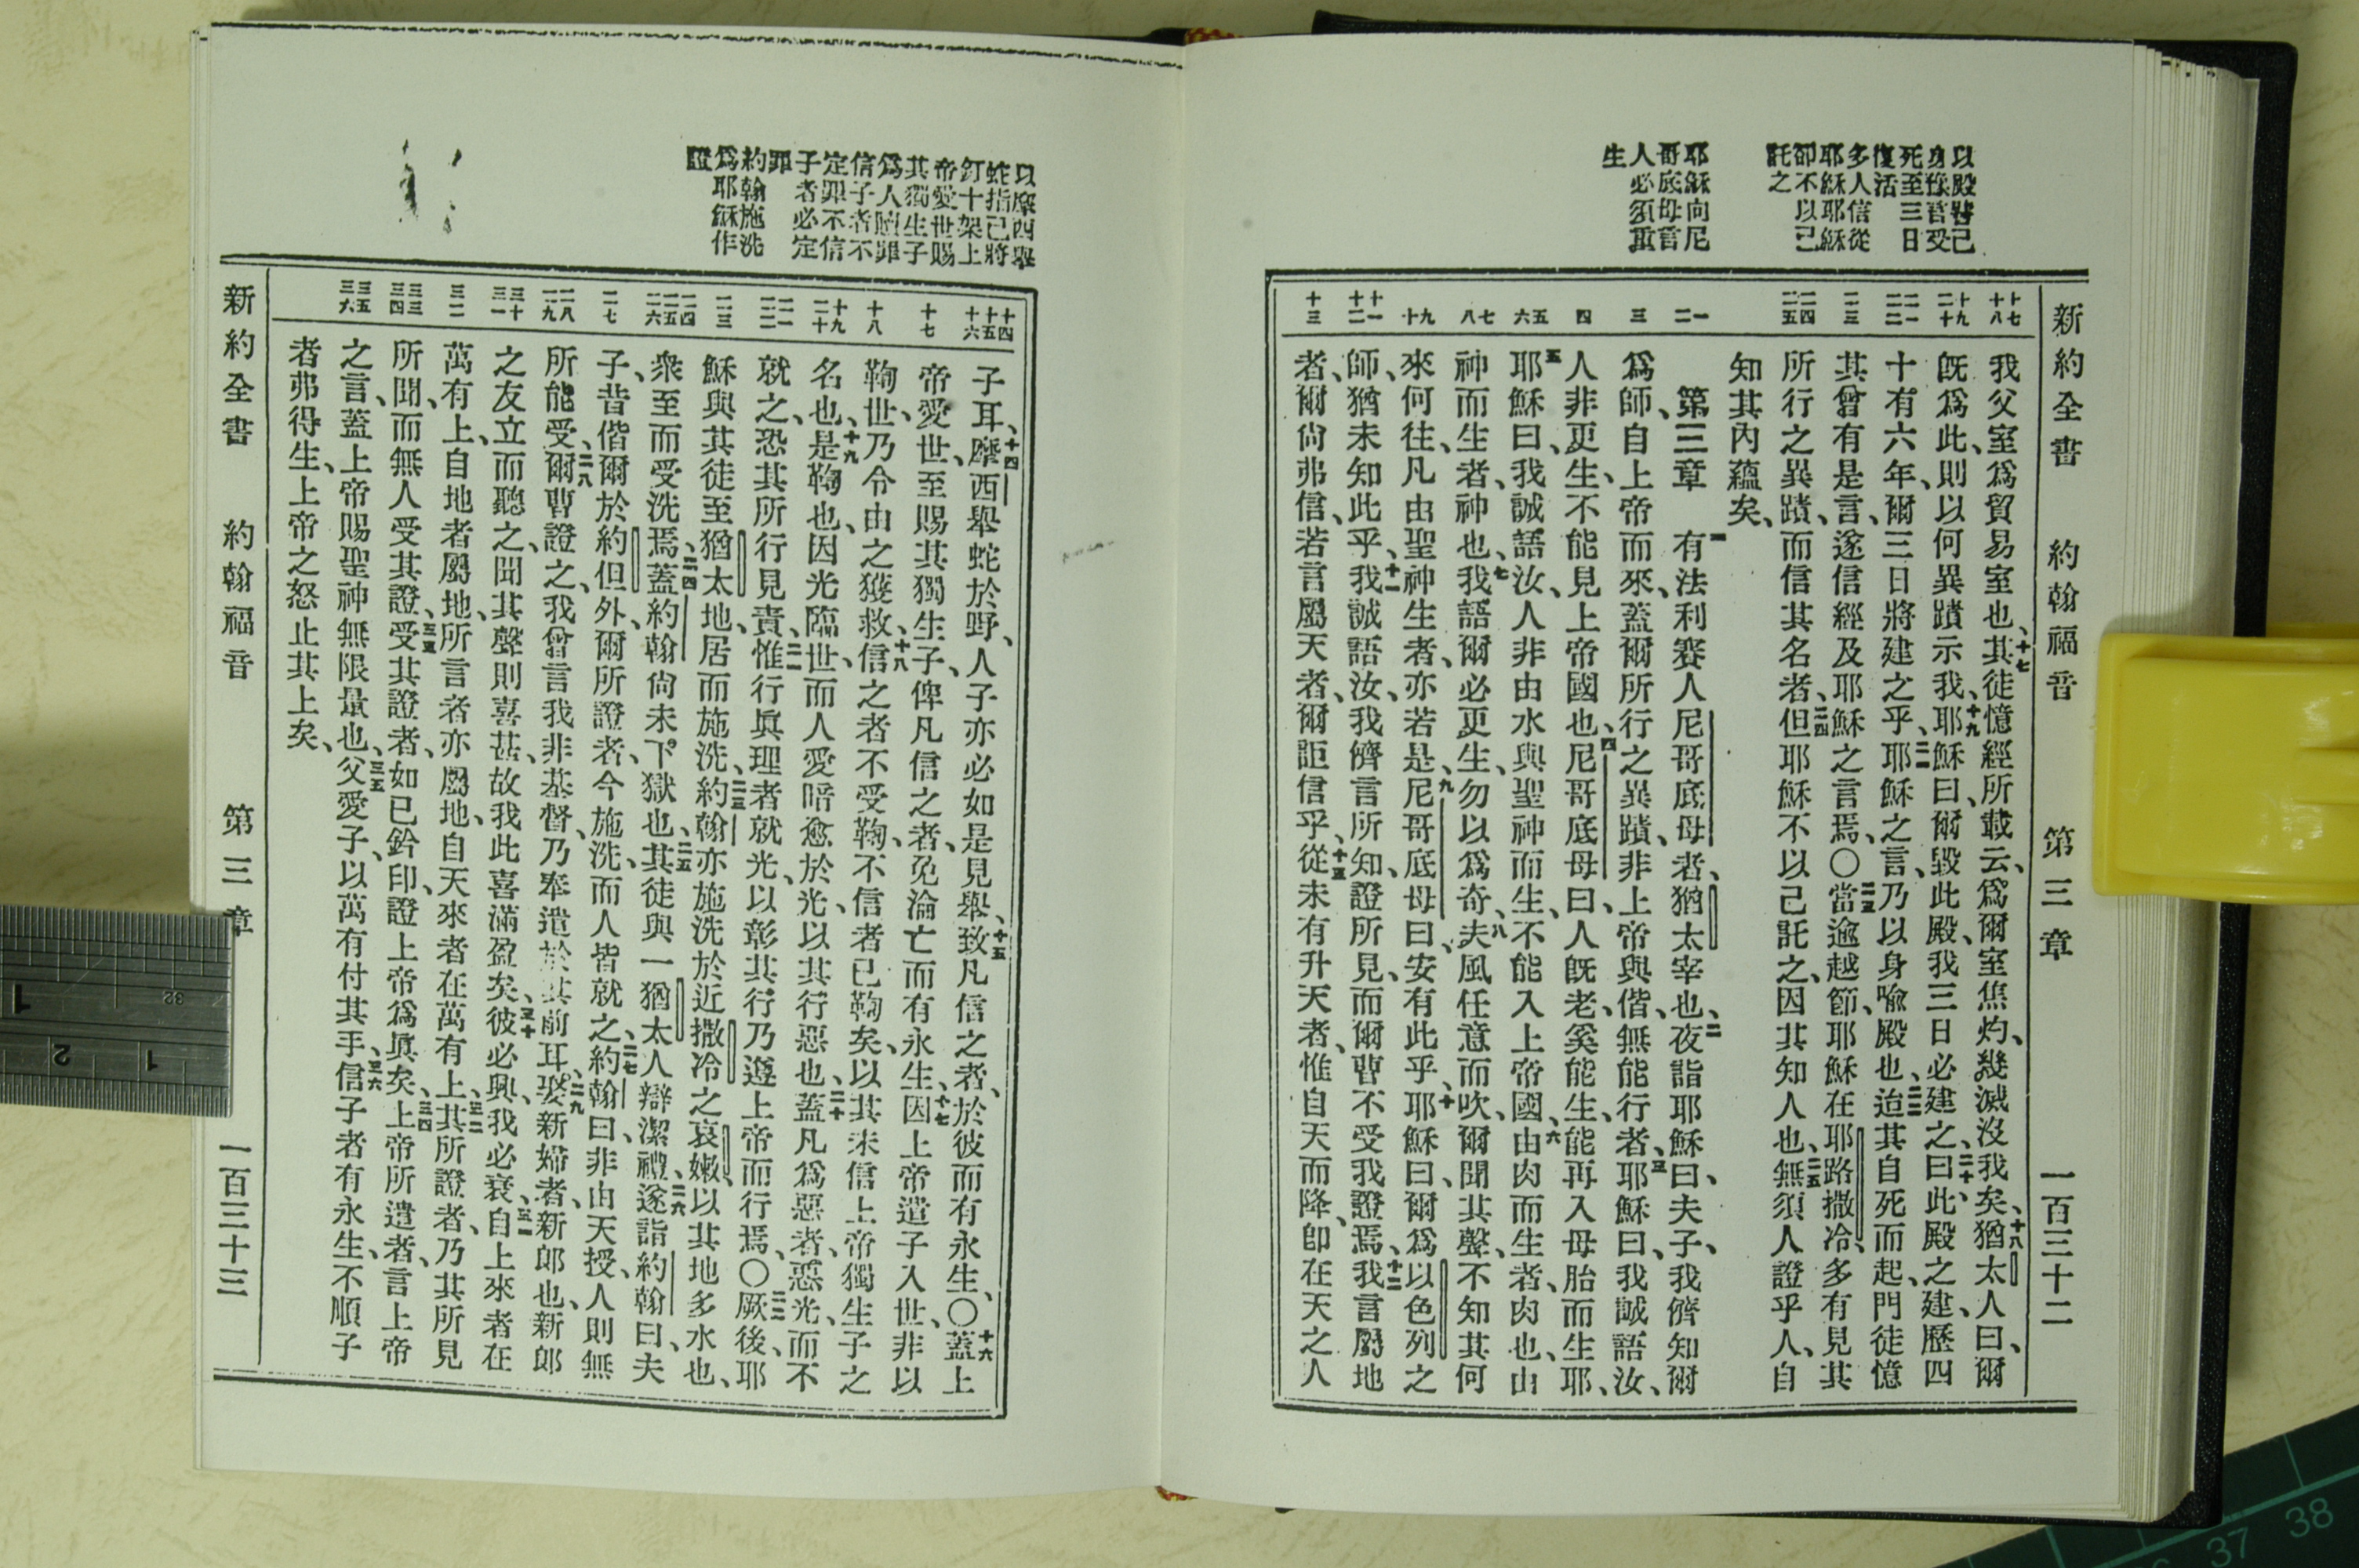 新約全書 約翰福音 第三章 一百三十二
以殿譬己
身豫言受
死至三日
復活
多人信從
耶穌耶穌
卻不以己
託之
耶穌向尼
哥底母言
人必須重
生
十七 十八
十九 二十
二一 二二
二三
二四 二五
一 二
三
四
五 六
七 八
九 十
十一 十二
十三
我父室爲貿易室也、十七其徒憶經所載云、爲爾室焦灼、幾滅沒我矣、十八猶太人曰、爾
旣爲此、則以何異蹟示我、十九耶穌曰、爾毀此殿、我三日必建之、二十曰、此殿之建、歷四
十有六年、爾三日將建之乎、二一耶穌之言、乃以身喻殿也、二二迨其自死而起、門徒憶
其曾有是言、遂信經及耶穌之言焉、〇二三當逾越節、耶穌在耶路撒冷、多有見其
所行之異蹟、而信其名者、二四但耶穌不以己託之、因其知人也、二五無須人證乎人、自
知其內蘊矣、
第三章 一有法利賽人尼哥底母者、猶太宰也、二夜詣耶穌曰、夫子、我儕知爾
爲師、自上帝而來、蓋爾所行之異蹟、非上帝與偕、無能行者、三耶穌曰、我誠語汝、
人非更生、不能見上帝國也、四尼哥底母曰、人旣老、奚能生、能再入母胎而生耶、
五耶穌曰、我誠語汝、人非由水與聖神而生、不能入上帝國、六由肉而生者、肉也、由
神而生者、神也、七我語爾必更生、勿以爲奇、八夫風任意而吹、爾聞其聲、不知其何
來何往、凡由聖神生者、亦若是、九尼哥底母曰、安有此乎、十耶穌曰、爾爲以色列之
師、猶未知此乎、十一我誠語汝、我儕言所知、證所見、而爾曹不受我證焉、十二我言屬地
者、爾尚弗信、若言屬天者、爾詎信乎、十三從未有升天者、惟自天而降、卽在天之人
以摩西舉
蛇指己將
釘十架上
帝愛世賜
其獨生子
爲人贖罪
信子者不
定罪不信
子者必定
罪
約翰施洗
爲耶穌作
證
十四 十五 十六
十七
十八
十九 二十
二一 二二
二三
二四 二五 二六
二七
二八 二九
三十 三一
三二
三三 三四
三五 三六
子耳、十四摩西舉蛇於野、人子亦必如是見舉、十五致凡信之者、於彼而有永生、〇十六蓋上
帝愛世、至賜其獨生子、俾凡信之者、免淪亡而有永生、十七因上帝遣子入世、非以
鞫世、乃令由之獲救、十八信之者不受鞫、不信者已鞫矣、以其未信上帝獨生子之
名也、十九是鞫也、因光臨世、而人愛暗愈於光、以其行惡也、二十蓋凡爲惡者、惡光、而不
就之、恐其所行見責、二一惟行眞理者就光、以彰其行乃遵上帝而行焉、〇二二厥後、耶
穌與其徒至猶太地、居而施洗、二三約翰亦施洗於近撒冷之哀嫩、以其地多水也、
衆至而受洗焉、二四蓋約翰尚未下獄也、二五其徒與一猶太人辯潔禮、二六遂詣約翰曰、夫
子、昔偕爾於約但外、爾所證者、今施洗、而人皆就之、二七約翰曰、非由天授、人則無
所能受、二八爾曹證之、我曾言我非基督、乃奉遣於其前耳、二九娶新婦者、新郎也、新郎
之友立而聽之、聞其聲則喜甚、故我此喜滿盈矣、三十彼必興、我必衰、三一自上來者在
萬有上、自地者屬地、所言者亦屬地、自天來者在萬有上、三二其所證者、乃其所見
所聞、而無人受其證、三三受其證者、如已鈐印、證上帝爲眞矣、三四上帝所遣者、言上帝
之言、蓋上帝賜聖神無限量也、三五父愛子、以萬有付其手、三六信子者有永生、不順子
者弗得生、上帝之怒止其上矣、
新約全書 約翰福音 第三章 一百三十三
1
32
2
1
37
38